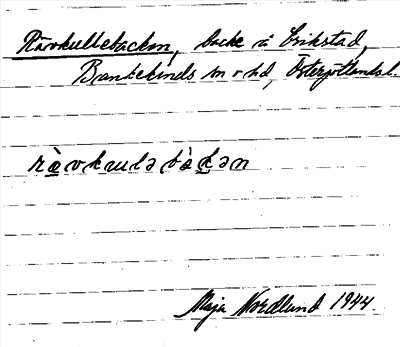 Rävkullebacken, backe å Erikstad,
Bankekinds sn o hd, Östergötlands l.
rävkuləbàkən
Maja Nordlund 1944.